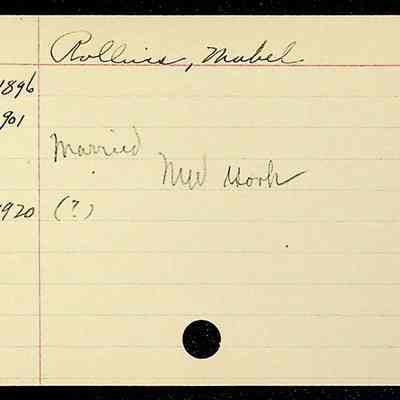 Rollins, Mabel
1896
901
Married
New York
1920 (?)